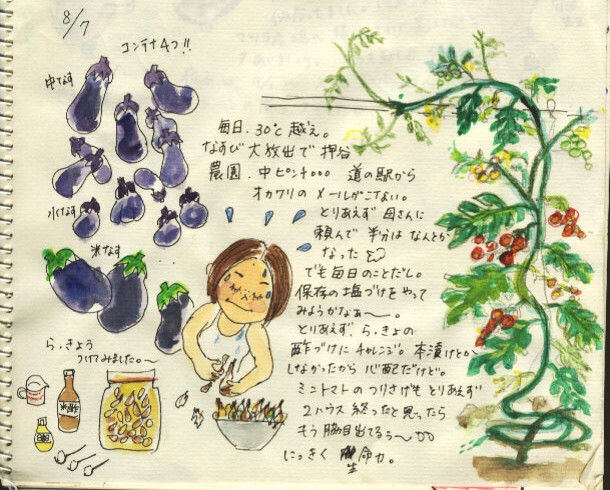 8/7
コンテナ4つ!!
中なす
水なす
米なす
毎日、30℃越え。
なすび大放出で押谷
農園、中ピンチ○○○ 道の駅から
オカワリのメールがこない。
とりあえず母さんに
頼んで半分はなんとか
なった
でも毎日のことだし。
保存の塩づけをやって
みようかなぁ〜。
とりあえずら、きょの
酢づけにチャレンジ。本漬けとか
しなかったから心配だけど。
ミニトマトのつりさげもとりあえず
2ハウス終ったと思ったら
もう脇目出てるぅ〜
にっきく 生命力。
ら、きょう
つけてみましたの〜
米酢